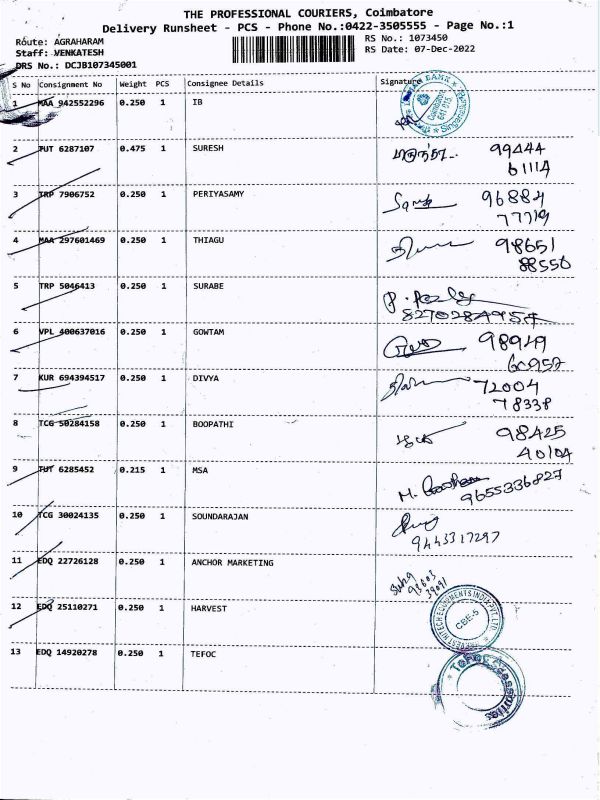 THE PROFESSIONAL COURIERS, Coimbatore
Delivery Runsheet - PCS - Phone No.:0422-3505555 - Page No.:1
Route: AGRAHARAM
RS No.: 1073450
Staff: VENKATESH
RS Date: 07-Dec-2022
DRS No.: DCJB107345001
S No Consignment No Weight PCS Consignee Details Signature
1 MAA 942552296 0.250 1 IB
INDIAN BANK Coimbatore 641 015
2 TUT 6287107 0.475 1 SURESH 99444
61114
3 TRP 7906752 0.250 1 PERIYASAMY 96884
77719
4 MAA 297601469 0.250 1 THIAGU 98651
88550
5 TRP 5046413 0.250 1 SURABE
8270284954
6 VPL 400637016 0.250 1 GOWTAM 98949
60952
7 KUR 694394517 0.250 1 DIVYA 72004
78338
8 TCG 50284158 0.250 1 BOOPATHI 98425
40104
9 TUT 6285452 0.215 1 MSA M.
9655336827
10 TCG 30024135 0.250 1 SOUNDARAJAN
9443317297
11 EDQ 22726128 0.250 1 ANCHOR MARKETING
12 EDQ 25110271 0.250 1 HARVEST
CBE-5
13 EDQ 14920278 0.250 1 TEFOC